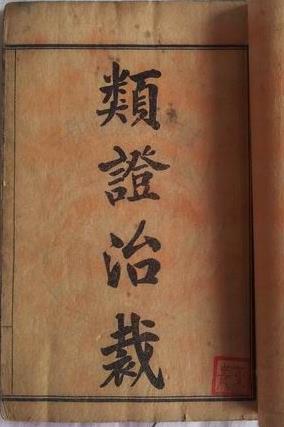 類證治裁